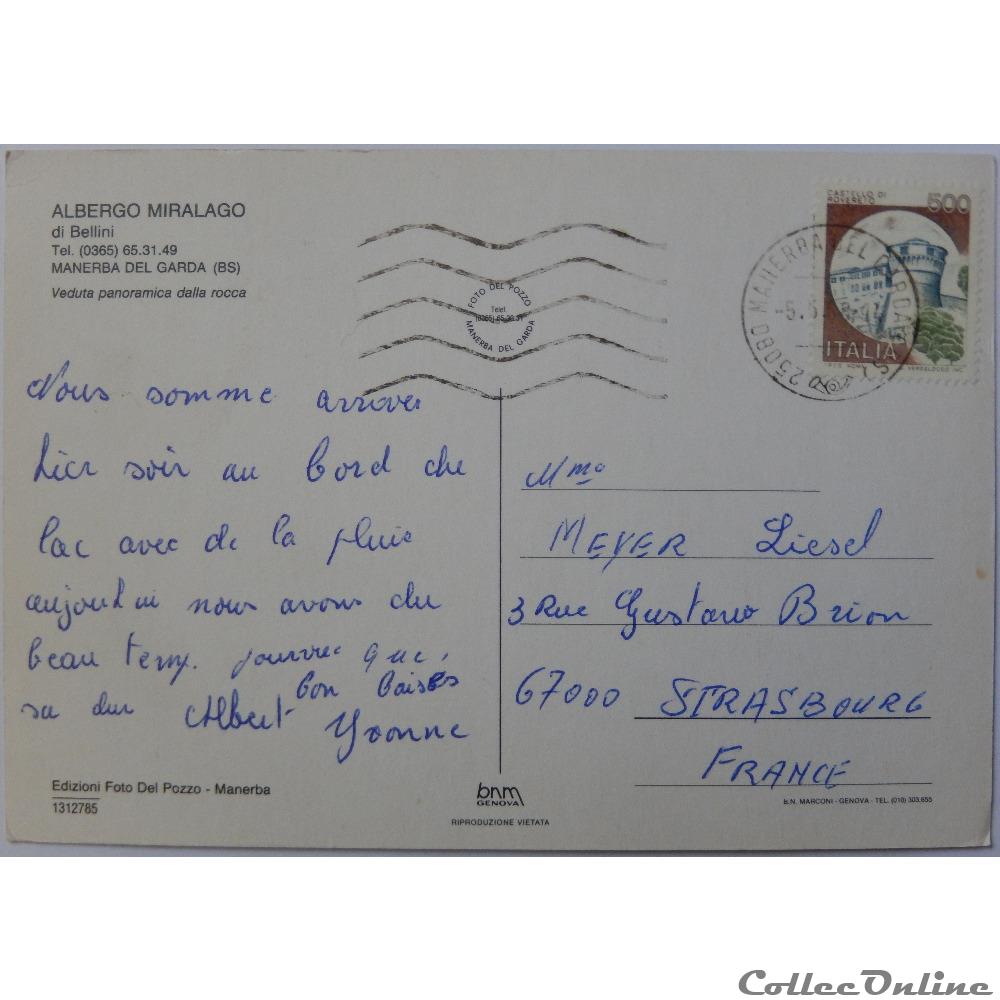 ALBERGO MIRALAGO
di Bellini
Tel. (0365) 65.31.49
MANERBA DEL GARDA (BS)
Veduta panoramica dalla rocca
FOTO DEL POZZO
Telef.
MANERBA DEL GARDA
CASTELLO DI
ROVERETO
500
ITALIA
25080 MANERBA DEL GARDA
Nous somme arrover
hier soir au bord du
lac avec de la pluie
aujourd'hui nous avons du
beau temp. pourvue que,
sa dur
bon baises
Albert Yvonne
Mme
MEYER Liesel
3 Rue Gustave Brion
67000 STRASBOURG
FRANCE
Edizioni Foto Del Pozzo - Manerba
1312785
bnm
GENOVA
RIPRODUZIONE VIETATA
B.N. MARCONI - GENOVA - TEL. (010) 303.655
CollecOnline